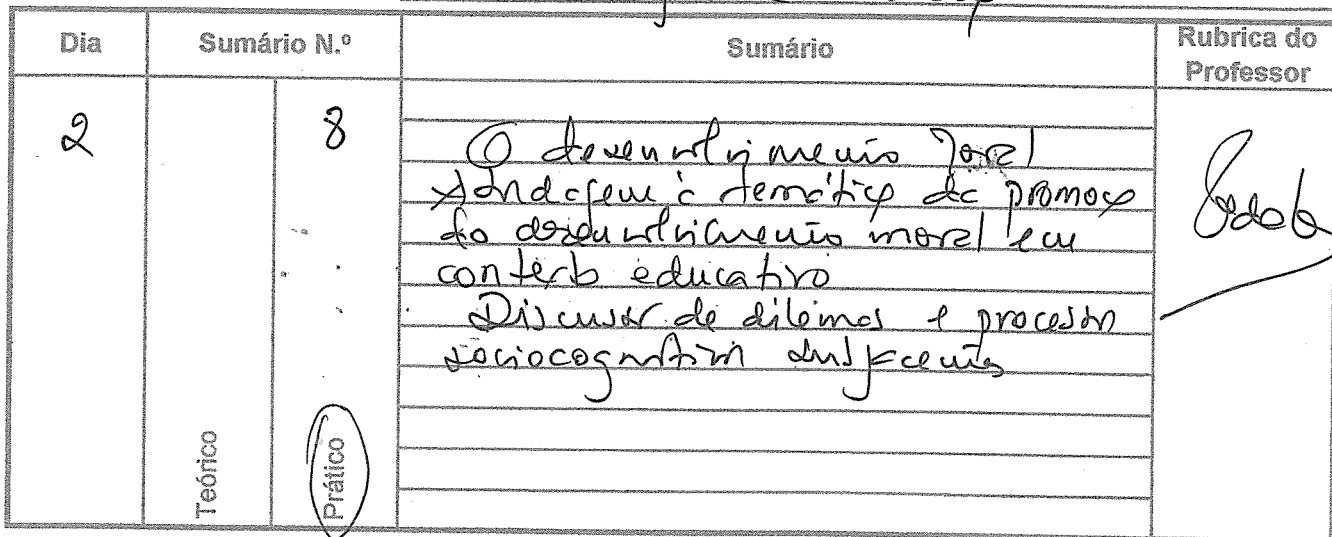 Dia Sumário N.º Sumário Rubrica do Professor
2 8
O desenvolvimento moral
Abordagem à temática da promoção
do desenvolvimento moral em
contexto educativo
Discussão de dilemas e processos
sociocognitivos subjacentes
Teórico Prático